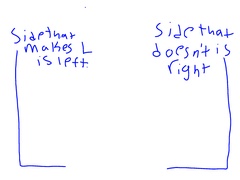 Side that
makes L
is left
Side that
doesn't is
right